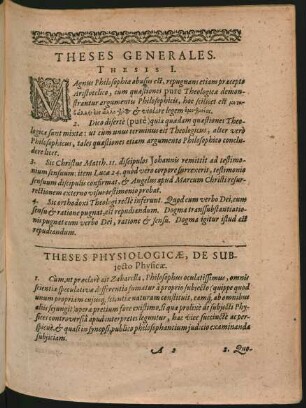 THESES GENERALES.
THESIS I.
MAgnus Philosophiæ abusus est, repugnans etiam præcepto
Aristotelico, cum quæstiones pure Theologicæ demon-
strantur argumentis Philosophicis, hoc scilicet est
& violare legem
2. Dico diserte (pure) quia quædam quæstiones Theo-
logicæ sunt mixtæ: ut cum unus terminus est Theologicus, alter verò
Philosophicus, tales quæstiones etiam argumento Philosophico conclu-
dere licet.
3. Sic Christus Matth. 11. discipulos Johannis remittit ad testimo-
nium sensuum: item Luca 24. quod vero corpore surrexerit, testimonio
sensuum discipulis confirmat, & Angelus apud Marcum Christi resur-
rectionem externo visus testimonio probat.
4. Sic orthodoxi Theologi rectè inferunt. Quod cum verbo Dei, cum
sensu & ratione pugnat, est repudiandum. Dogma transsubstantiatio-
nis pugnat cum verbo Dei, ratione & sensu. Dogma igitur istud est
repudiandum.
THESES PHYSIOLOGICÆ, DE SUB-
jecto Physicæ.
1. Cum, ut præclarè ait Zabarella, Philosophus oculatissimus, omnis
scientiæ speculativæ differentia sumatur à proprio subjecto (quippe quod
unum propriam cujusq; scientiæ naturam constituit, eamq́; ab omnibus
aliis sejungit) operæ pretium fore existimo, si quæ prolixè de subjecto Phy-
sices controversiæ apud interpretes leguntur, hac vice succinctè ac per-
spicuè, & quasi in synopsi, publico philosophantium judicio examinanda
subjiciam.
A 2 2. Quo-